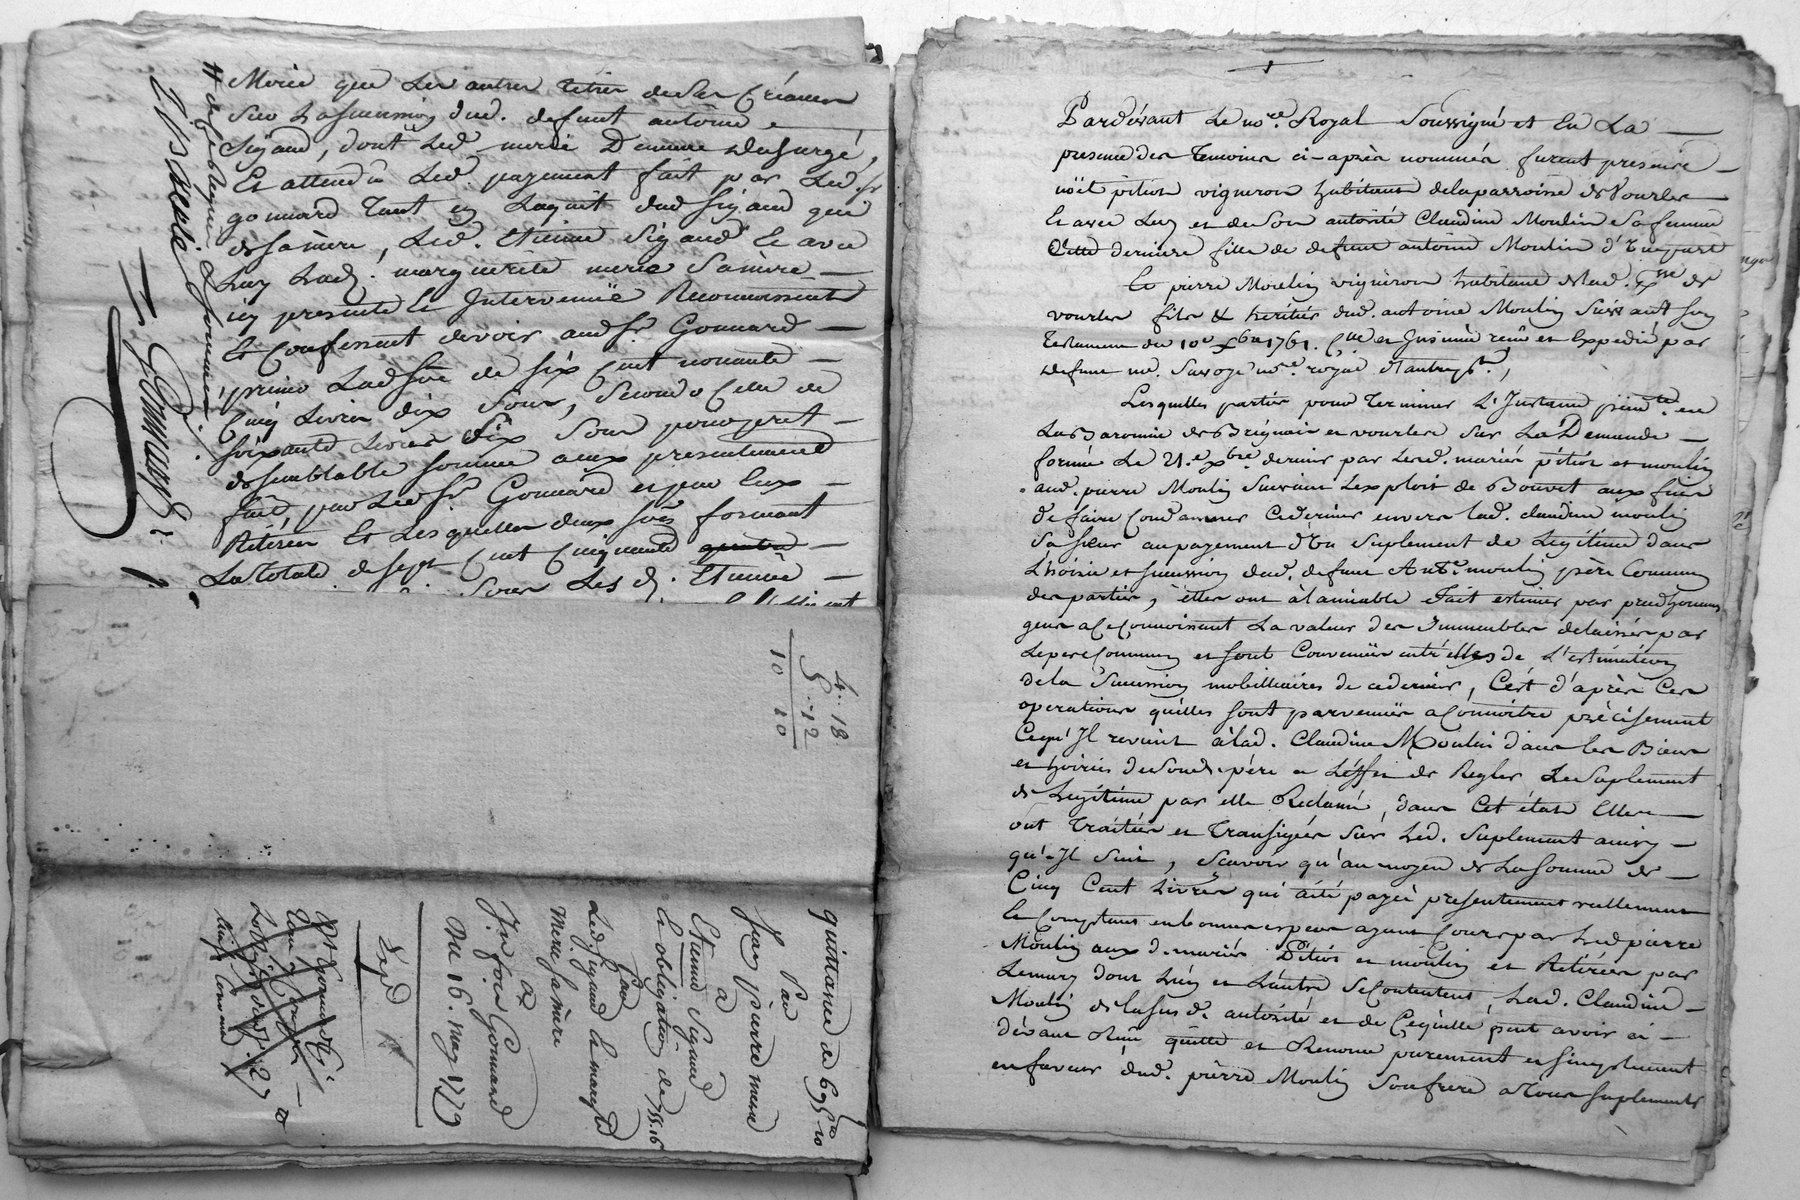 Merié que les autres titres de ses créances
sur la succession dud. defunt antoine
Sigaud, dont led merié Demeure deschargé,
Et attendu led. payement fait par led. sr
gonnard tant en l'aquit dud sigaud que
de sa mère, led. Etienne Sigaud Et avec
luy lad. marguerite merié sa mère
icy presente Et Intervenüe Reconnoissent
Et Confessent devoir aud sr Gonnard
primo lad sõe de six Cent nonante
Cinq Livres dix sous, secondo Celle de
soixante Livres dix sous pour pret
de semblable somme a eux presentement
fait par led sr Gonnard et par Eux
Retirée Et lesquelles deux sões formant
La Totale de sept Cent Cinquante
Les d. Etienne
J. Gonnard
4. 18.
5. 12
10 10
quittance de 695# 10
Par
Jean pierre merié
a
Etienne Sigaud
Et obligation de 755# 16
Par
Led Sigaud Et margte
Merié sa mère
a
Sr françois Gonnard
Du 16. may 1779
Par devant Le nore. Royal soussigné et En La
presence des Temoins ci-après nommés furent presents
noël pitiot vigneron habitant de la parroisse de Vourles
Et avec luy et de son autorité Claudine Moulin sa femme
Cette derniere fille de defunt antoine Moulin d'une part
Et pierre Moulin vigneron habitant de lad. psse de
vourles fils & heritier dud. antoine Moulin suivant son
Testament du 10e Xbre 1761. Clle et Insinué reçu et Expedié par
defunt me. Savoye nore. royal d'autre pt.,
Lesquelles parties pour Terminer L'Instance pendte. en
La Baronnie de Brignais et vourles sur La Demande
formée Le 21.e Xbre dernier par lesd. mariés pitiot et moulin
aud. pierre Moulin suivant L'exploit de Bouvet aux fins
de faire Condamner Ce dernier envers lad. claudine moulin
sa sœur au payement d'un suplement de Legitime dans
L'hoirie et succession dud. defunt Ante. moulin père Commun
des parties, elles ont à l'amiable Fait estimer par prudhommes
gens a Ce Connoissant La valeur des Immeubles delaissés par
Le pere Commun et sont Convenües entr'elles de L'estimation
de la succession mobilliaires de ce dernier, C'est d'après Ces
operations qu'elles sont parvenües a Connoitre précisement
Ce qu'Il revient à lad. Claudine Moulin dans les Biens
et hoiries de son d. père a L'effet de Regler Le Suplement
de Legitime par elle Reclamé, dans Cet état Elles
ont Traitées et Transigées sur led. suplement ainsy
qu'Il suit, scavoir qu'au moyen de La somme de
Cinq Cent Livres qui a été payée presentement reellement
Et Comptant en bonnes especes ayant Cours par led pierre
Moulin aux d. mariés Pitiot et moulin et Retirées par
Le mary dont L'un et L'autre se Contentent, Lad. Claudine
Moulin de la susd. autorité et de Ce qu'elle peut avoir ci
devant Reçu quitte et Renonce purement et simplement
en faveur dud. pierre Moulin son frere a tous suplements